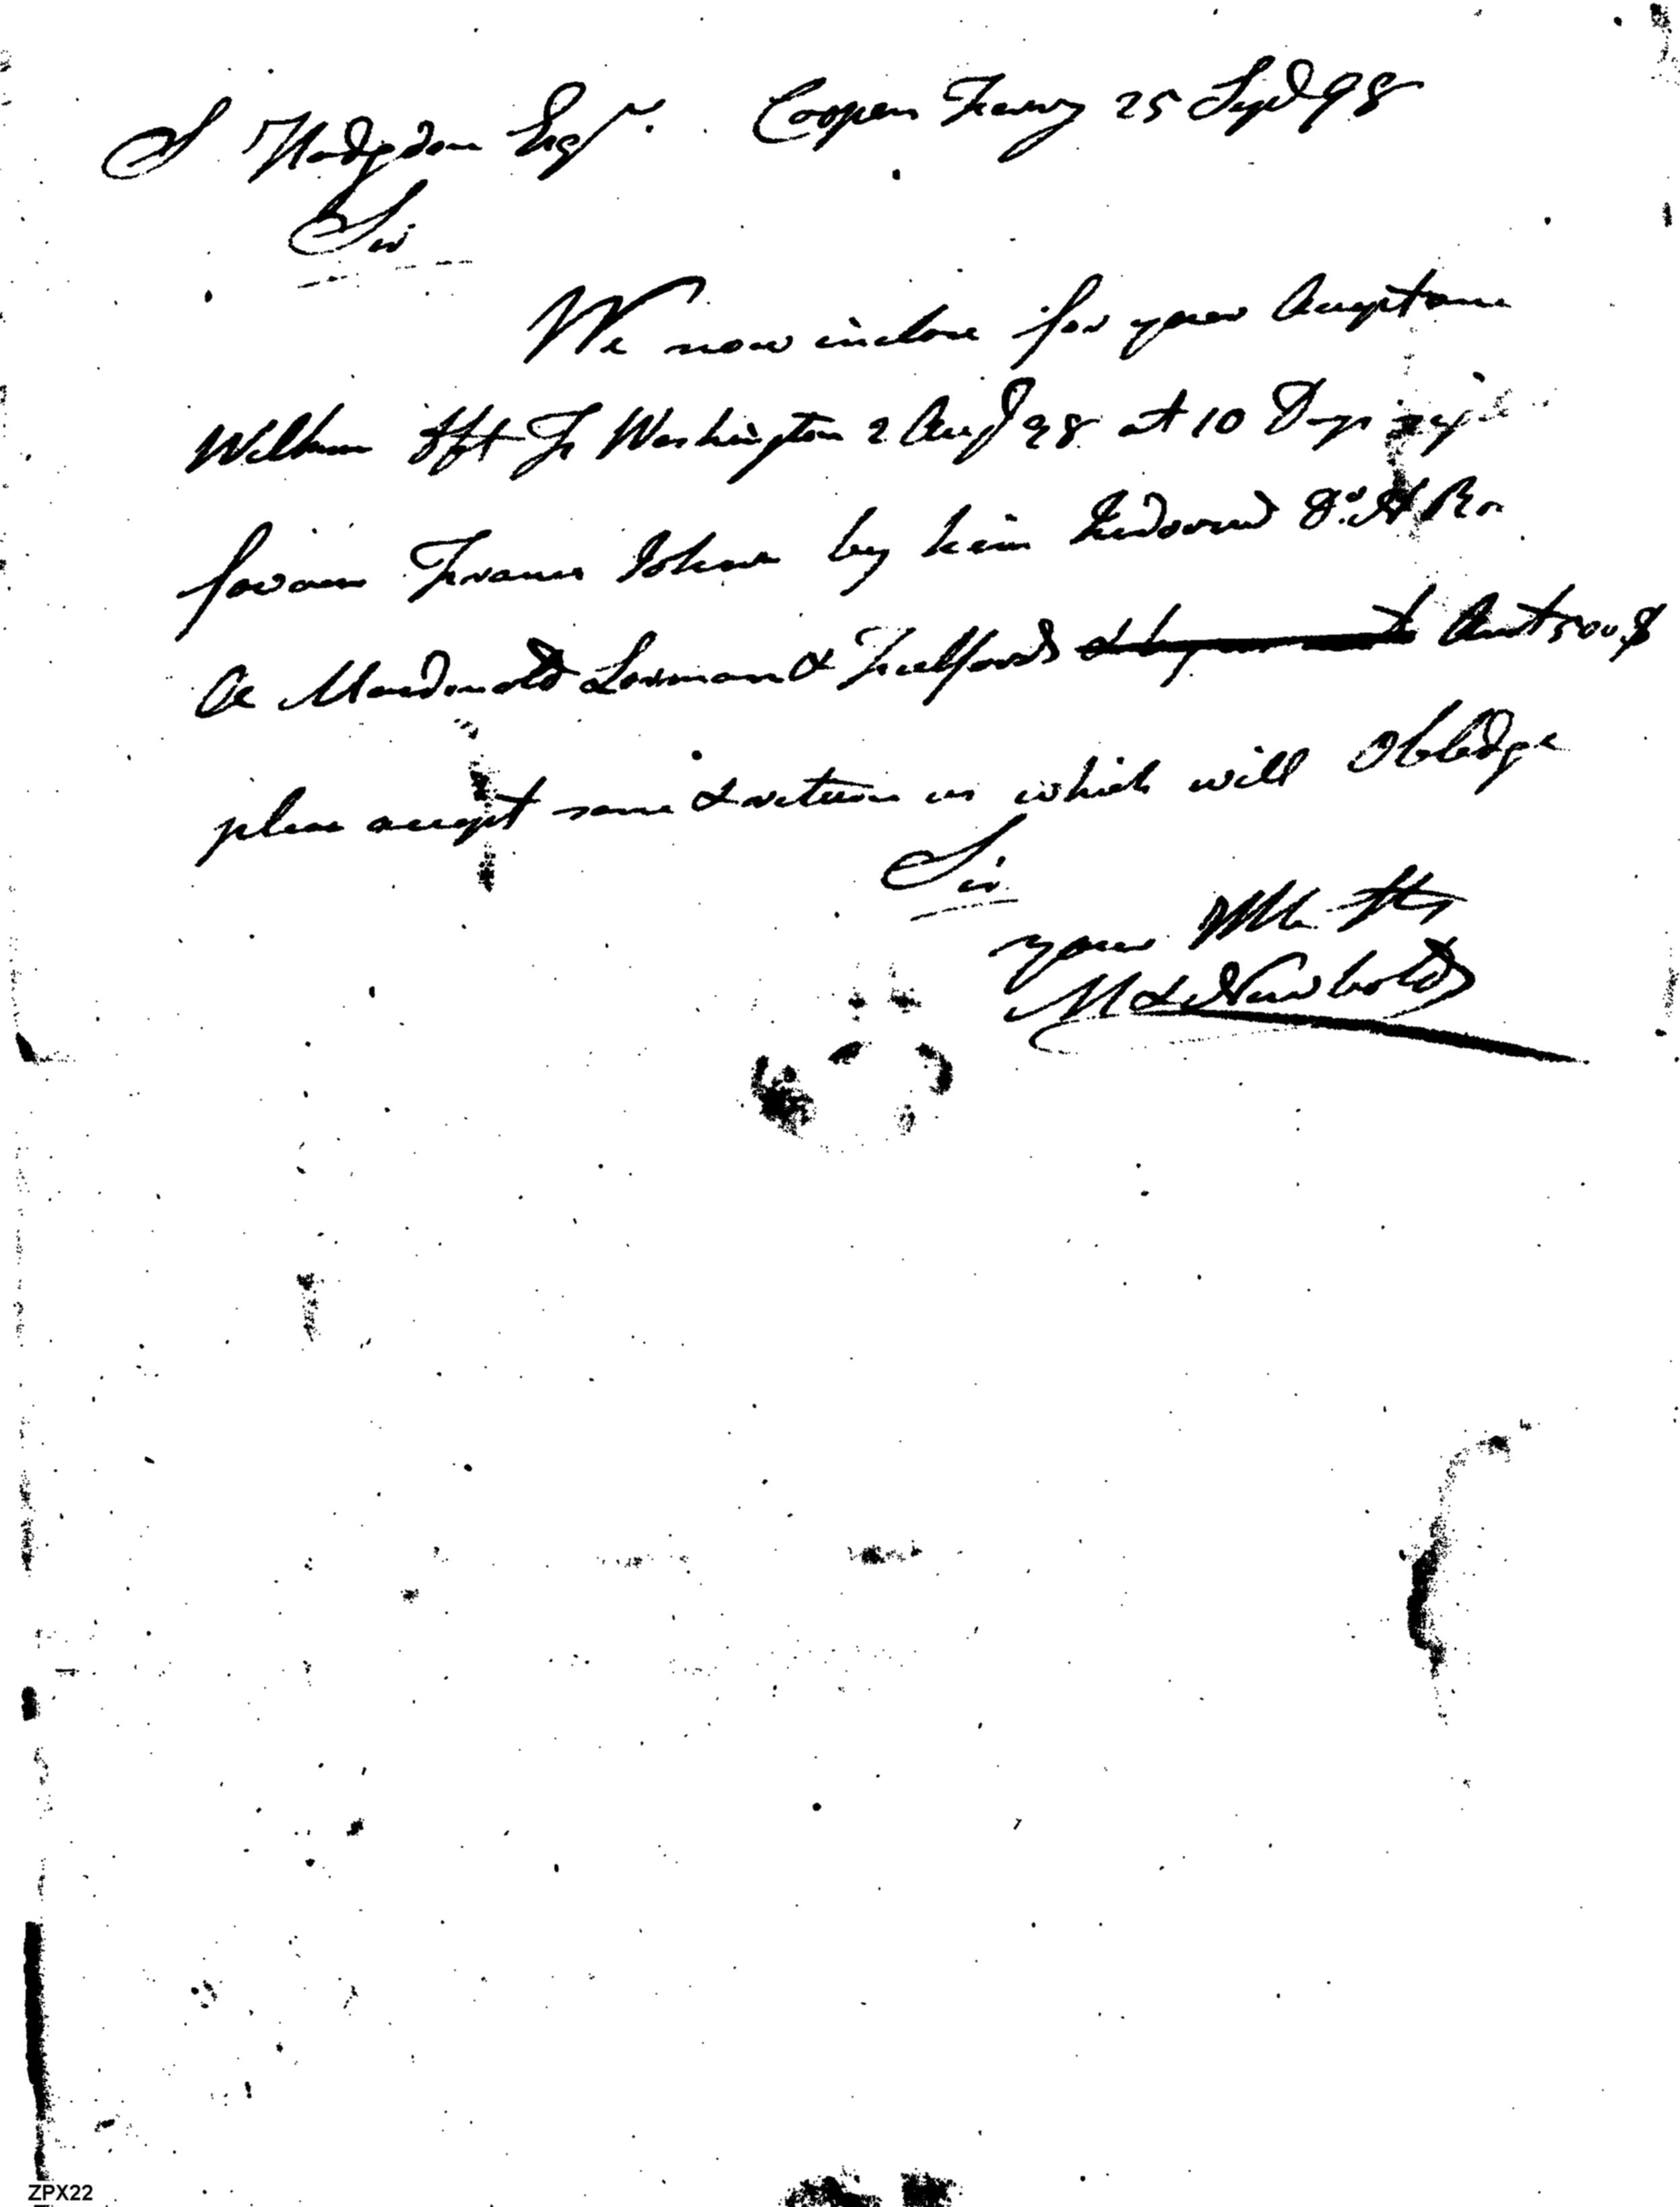 S Hodgdon Esqr. Coopers Ferry 25 Sept 98
Sir
We now inclose for your Acceptance
William dft Ft Washington 2 Augt 98 at 10 Days
favour Francis by him Endorsed
Macdonald Lorman & Fulford Amt 500 $
please accept same & return us which will Obledge
Sir
your
M & Newbold
ZPX22